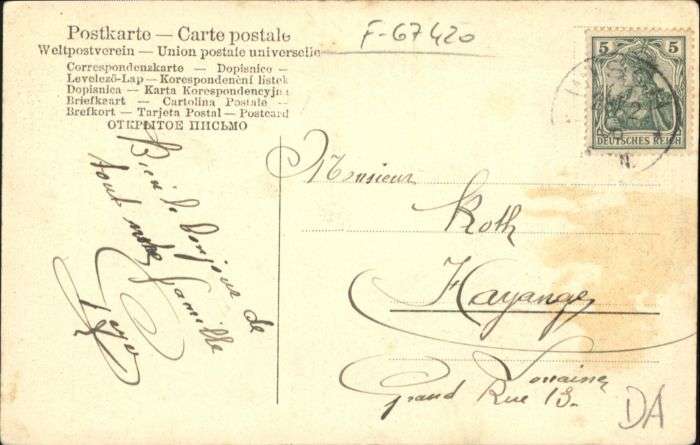 Postkarte — Carte postale
Weltpostverein — Union postale universelle
Correspondenzkarte — Dopisnice —
Levelező-Lap — Korespondenční listek
Dopisnica — Karta Korespondencyjna
Briefkaart — Cartolina Postale —
Brefkort — Tarjeta Postal — Postcard
ОТКРЫТОЕ ПИСЬМО
F-67420
5 5
DEUTSCHES REICH
Bien le bonjour de
toute notre famille
Monsieur
Roth
Hayange
Lorraine
Grand Rue 13.
DA